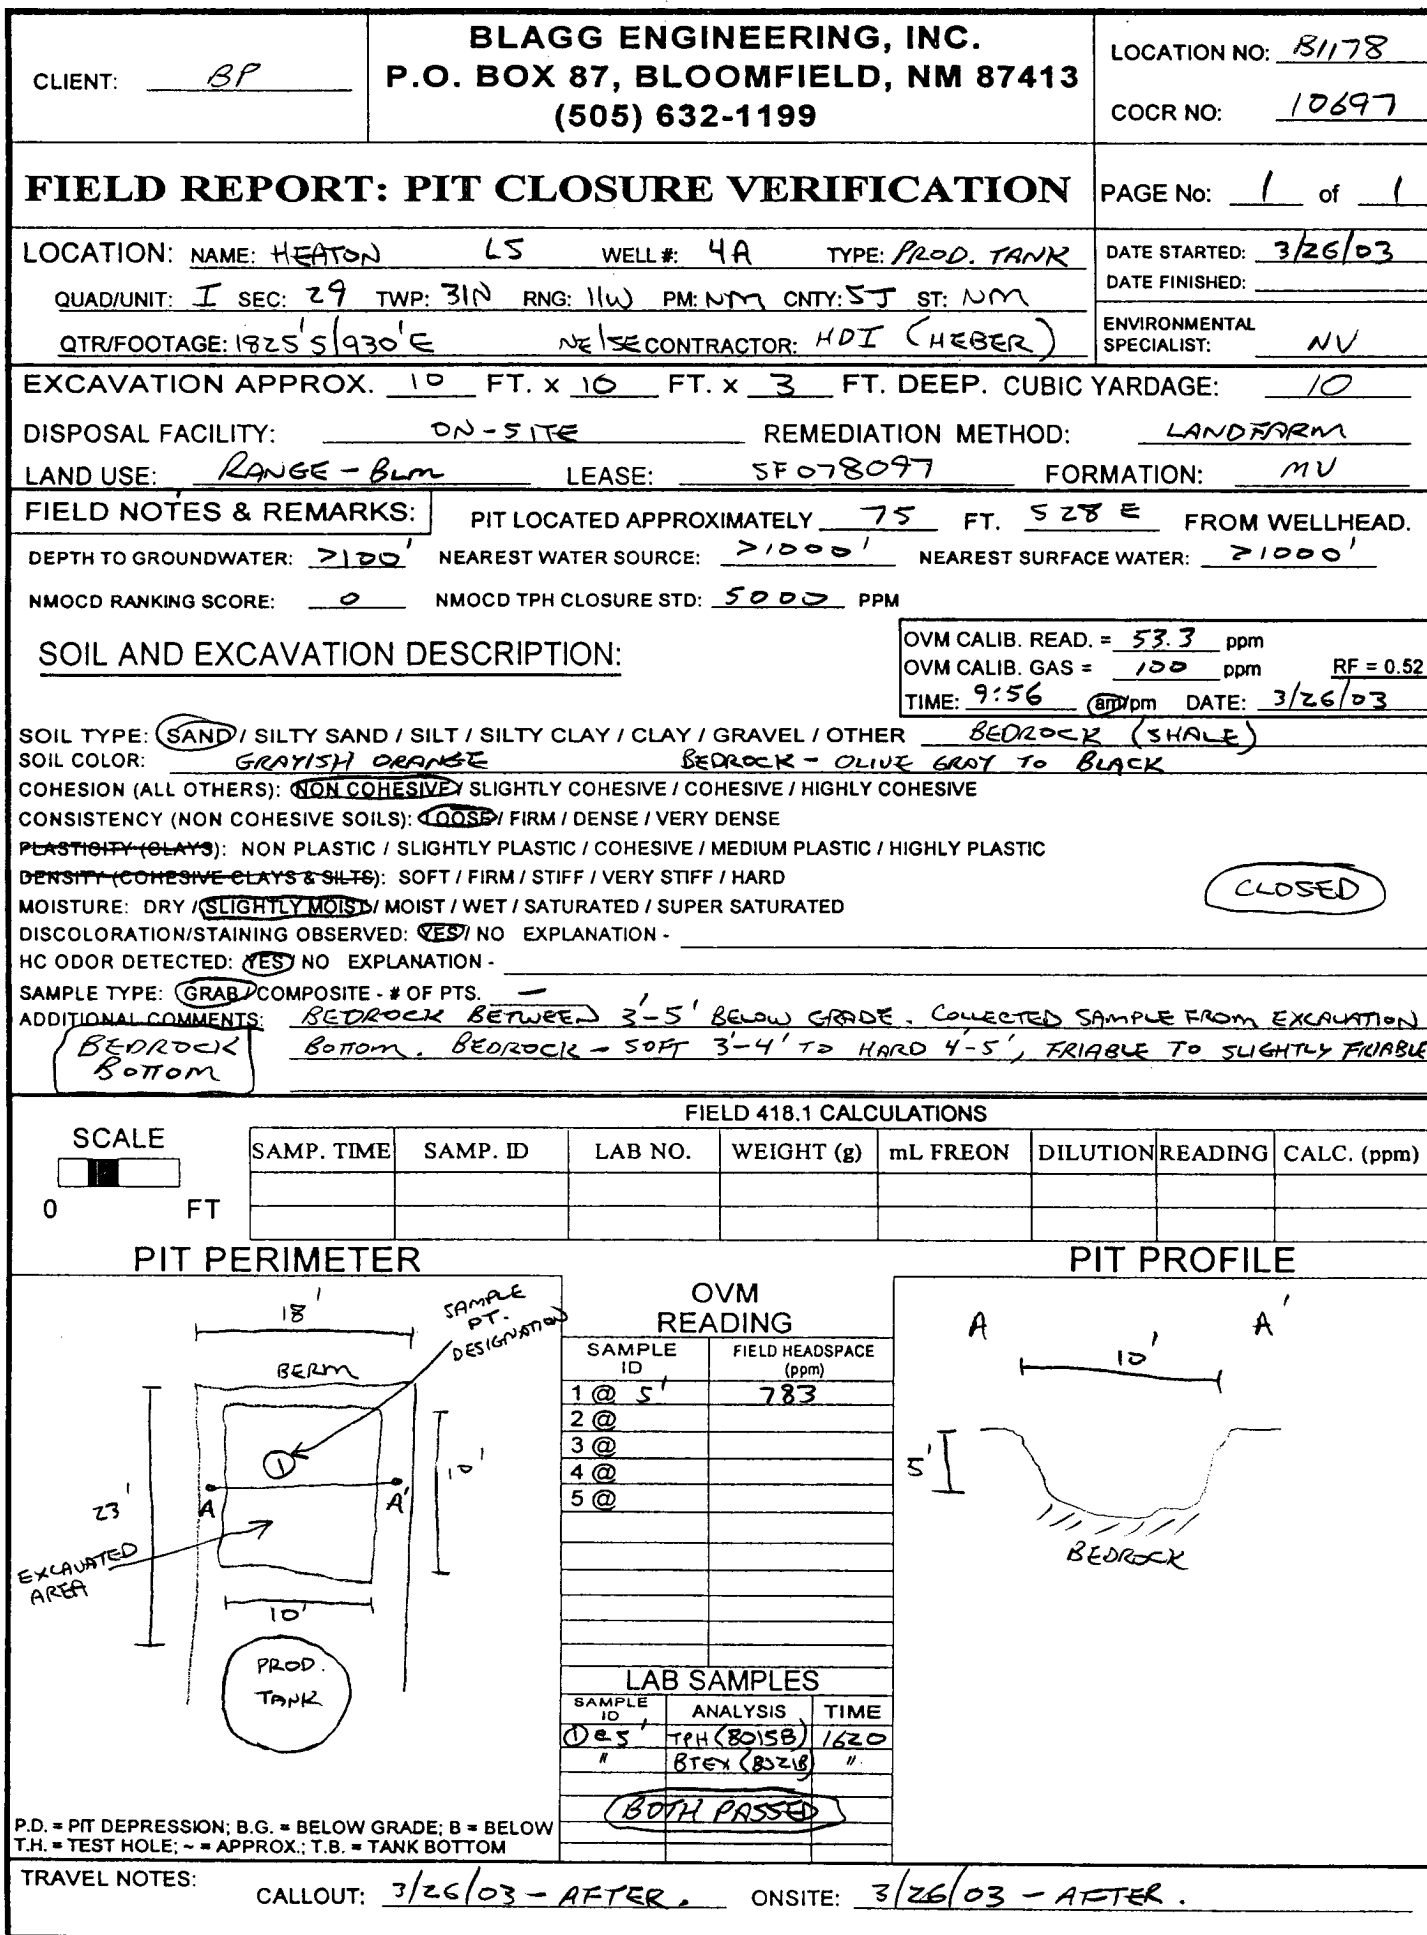 CLIENT: BP
BLAGG ENGINEERING, INC.
P.O. BOX 87, BLOOMFIELD, NM 87413
(505) 632-1199
LOCATION NO: B1178
COCR NO: 10697
FIELD REPORT: PIT CLOSURE VERIFICATION
PAGE No: 1 of 1
LOCATION: NAME: HEATON LS WELL #: 4A TYPE: PROD. TANK
QUAD/UNIT: I SEC: 29 TWP: 31N RNG: 11W PM: NM CNTY: SJ ST: NM
QTR/FOOTAGE: 1825'S/930'E NE/SE CONTRACTOR: HDI (HEBER)
DATE STARTED: 3/26/03
DATE FINISHED:
ENVIRONMENTAL
SPECIALIST: NV
EXCAVATION APPROX. 10 FT. x 10 FT. x 3 FT. DEEP. CUBIC YARDAGE: 10
DISPOSAL FACILITY: ON-SITE REMEDIATION METHOD: LANDFARM
LAND USE: RANGE - BLM LEASE: SF078097 FORMATION: MV
FIELD NOTES & REMARKS: PIT LOCATED APPROXIMATELY 75 FT. S28E FROM WELLHEAD.
DEPTH TO GROUNDWATER: >100' NEAREST WATER SOURCE: >1000' NEAREST SURFACE WATER: >1000'
NMOCD RANKING SCORE: 0 NMOCD TPH CLOSURE STD: 5000 PPM
SOIL AND EXCAVATION DESCRIPTION:
OVM CALIB. READ. = 53.3 ppm
OVM CALIB. GAS = 100 ppm RF = 0.52
TIME: 9:56 am/pm DATE: 3/26/03
SOIL TYPE: SAND / SILTY SAND / SILT / SILTY CLAY / CLAY / GRAVEL / OTHER BEDROCK (SHALE)
SOIL COLOR: GRAYISH ORANGE BEDROCK - OLIVE GRAY TO BLACK
COHESION (ALL OTHERS): NON COHESIVE / SLIGHTLY COHESIVE / COHESIVE / HIGHLY COHESIVE
CONSISTENCY (NON COHESIVE SOILS): LOOSE / FIRM / DENSE / VERY DENSE
PLASTICITY (CLAYS): NON PLASTIC / SLIGHTLY PLASTIC / COHESIVE / MEDIUM PLASTIC / HIGHLY PLASTIC
DENSITY (COHESIVE CLAYS & SILTS): SOFT / FIRM / STIFF / VERY STIFF / HARD
MOISTURE: DRY / SLIGHTLY MOIST / MOIST / WET / SATURATED / SUPER SATURATED
CLOSED
DISCOLORATION/STAINING OBSERVED: YES / NO EXPLANATION -
HC ODOR DETECTED: YES / NO EXPLANATION -
SAMPLE TYPE: GRAB / COMPOSITE - # OF PTS. —
ADDITIONAL COMMENTS: BEDROCK BETWEEN 3'-5' BELOW GRADE. COLLECTED SAMPLE FROM EXCAVATION
BOTTOM. BEDROCK - SOFT 3'-4' TO HARD 4'-5', FRIABLE TO SLIGHTLY FRIABLE
BEDROCK
BOTTOM
FIELD 418.1 CALCULATIONS
SCALE
0 FT
SAMP. TIME SAMP. ID LAB NO. WEIGHT (g) mL FREON DILUTION READING CALC. (ppm)
PIT PERIMETER
18'
SAMPLE
PT.
DESIGNATION
BERM
1
10'
23'
A A'
EXCAVATED
AREA
10'
PROD.
TANK
P.D. = PIT DEPRESSION; B.G. = BELOW GRADE; B = BELOW
T.H. = TEST HOLE; ~ = APPROX.; T.B. = TANK BOTTOM
OVM
READING
SAMPLE
ID
FIELD HEADSPACE
(ppm)
1 @ 5' 783
2 @
3 @
4 @
5 @
LAB SAMPLES
SAMPLE
ID
ANALYSIS TIME
① @ 5' TPH (8015B) 1620
" BTEX (8021B) "
BOTH PASSED
PIT PROFILE
A A'
10'
5'
BEDROCK
TRAVEL NOTES:
CALLOUT: 3/26/03 - AFTER. ONSITE: 3/26/03 - AFTER.